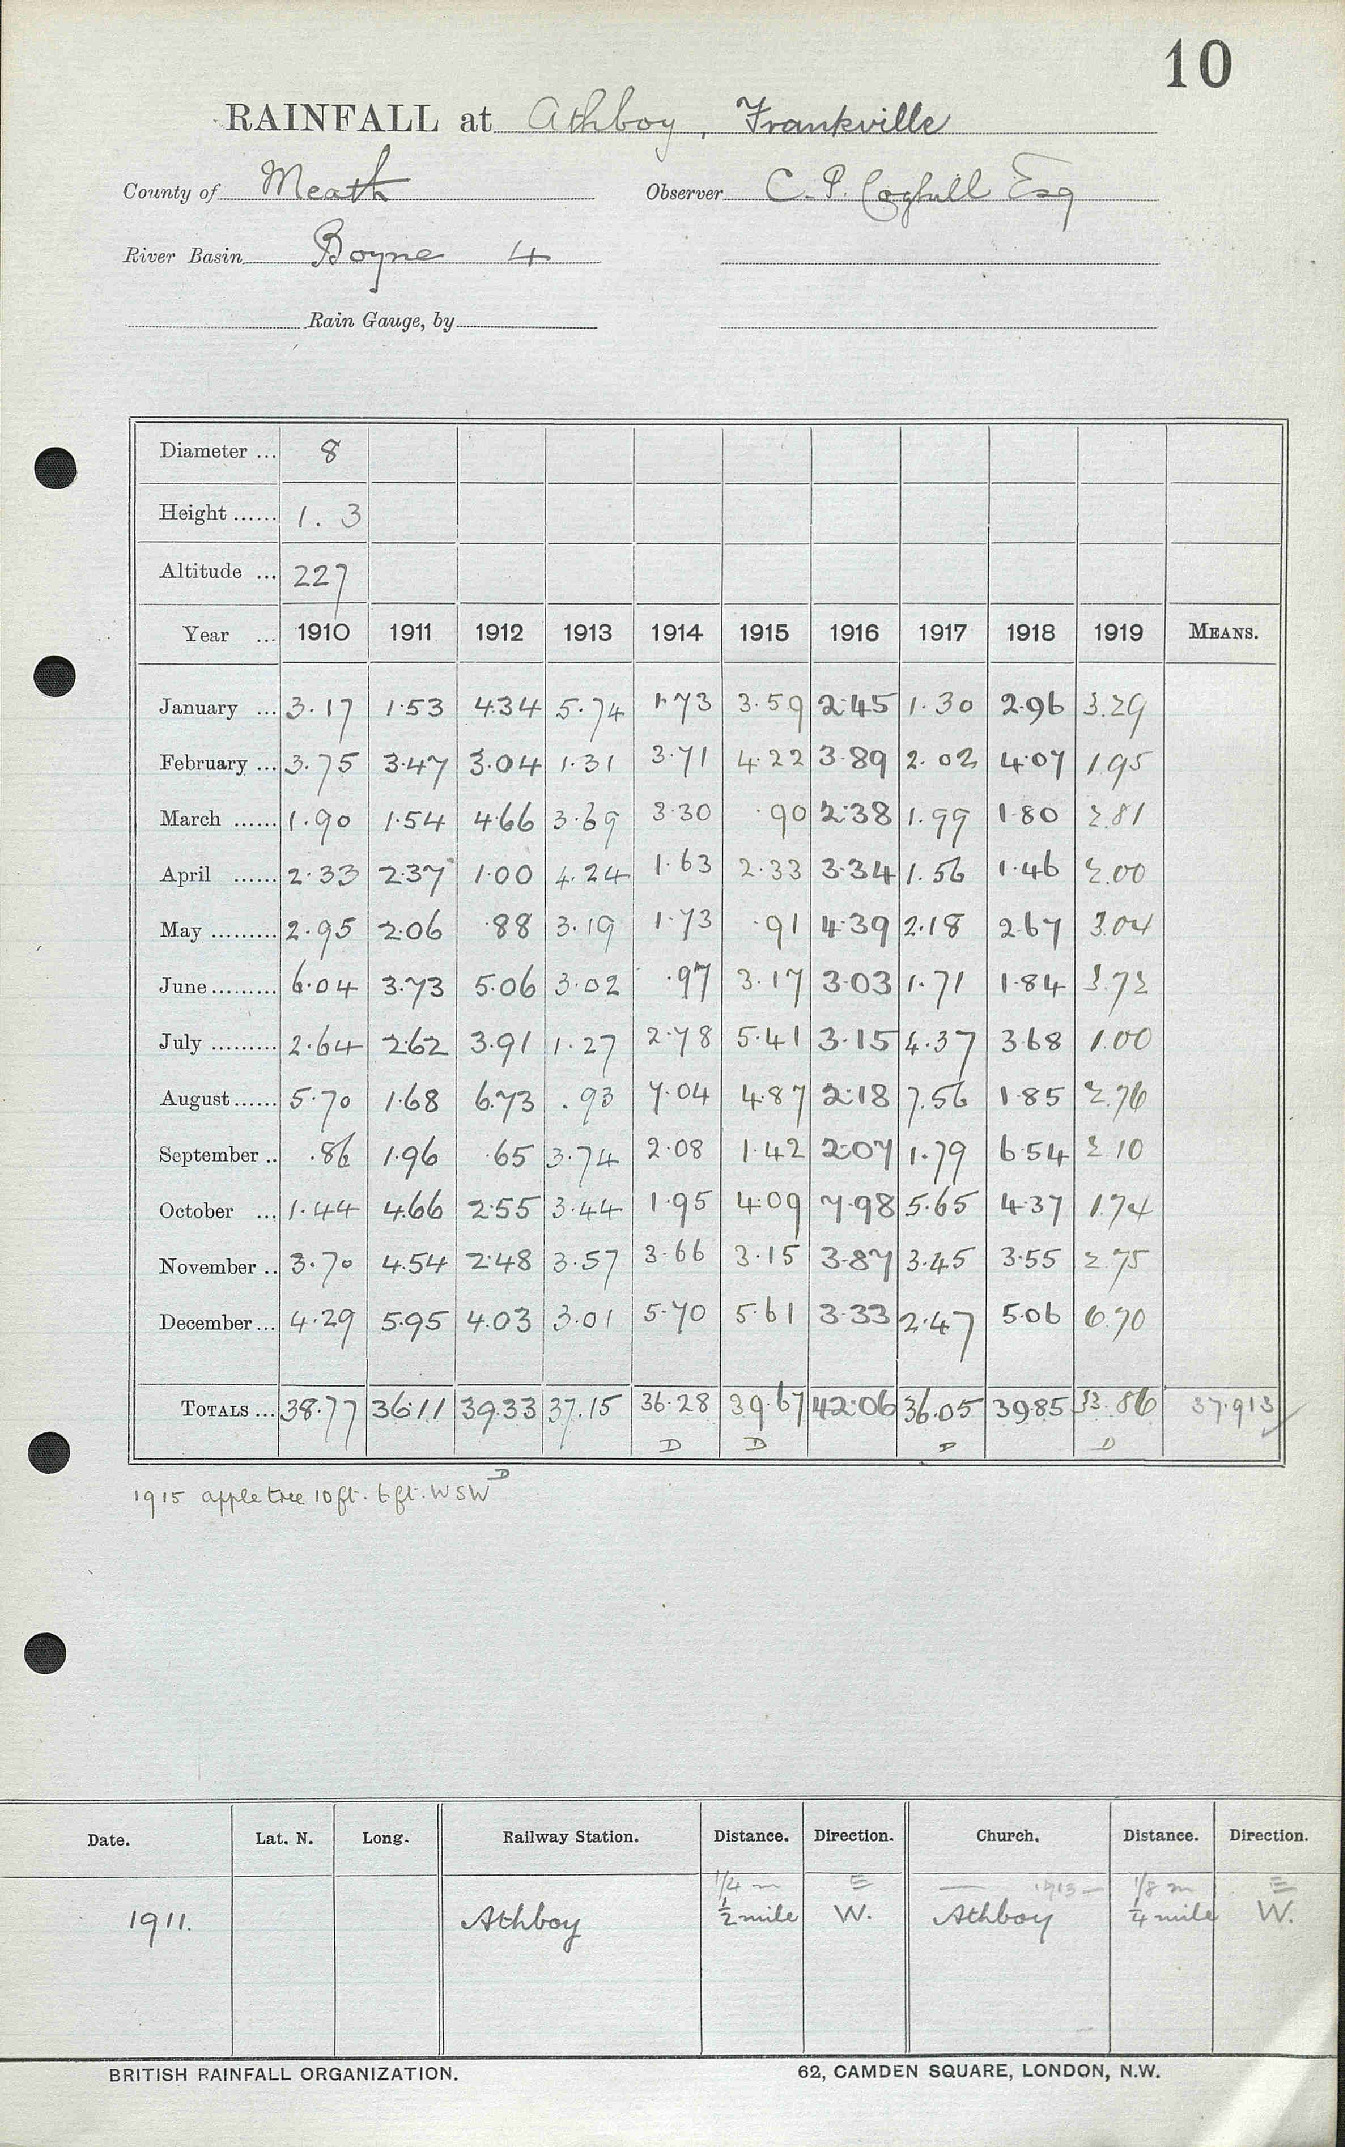 10
RAINFALL at Athboy, Frankville
County of Meath Observer C. P. Coghill Esq
River Basin Boyne 4
Rain Gauge, by
Diameter ... 8
Height ...... 1. 3
Altitude ... 227
Year ... 1910 1911 1912 1913 1914 1915 1916 1917 1918 1919 MEANS.
January ... 3.17 1.53 4.34 5.74 1.73 3.59 2.45 1.30 2.96 3.29
February ... 3.75 3.47 3.04 1.31 3.71 4.22 3.89 2.02 4.07 1.95
March ...... 1.90 1.54 4.66 3.69 3.30 .90 2.38 1.99 1.80 2.81
April ...... 2.33 2.37 1.00 4.24 1.63 2.33 3.34 1.56 1.46 2.00
May ......... 2.95 2.06 .88 3.19 1.73 .91 4.39 2.18 2.67 3.04
June ......... 6.04 3.73 5.06 3.02 .97 3.17 3.03 1.71 1.84 3.72
July ......... 2.64 2.62 3.91 1.27 2.78 5.41 3.15 4.37 3.68 1.00
August ...... 5.70 1.68 6.73 .93 7.04 4.87 2.18 7.56 1.85 2.76
September .. .86 1.96 .65 3.74 2.08 1.42 2.07 1.79 6.54 2.10
October ... 1.44 4.66 2.55 3.44 1.95 4.09 7.98 5.65 4.37 1.74
November .. 3.70 4.54 2.48 3.57 3.66 3.15 3.87 3.45 3.55 2.75
December ... 4.29 5.95 4.03 3.01 5.70 5.61 3.33 2.47 5.06 6.70
TOTALS ... 38.77 36.11 39.33 37.15 36.28 39.67 42.06 36.05 39.85 33.86 37.913
D D D D
1915 apple tree 10 ft. 6 ft. WSW D
Date. Lat. N. Long. Railway Station. Distance. Direction. Church. Distance. Direction.
1/4 m E — 1913 — 1/8 m E
1911. Athboy 1/2 mile W. Athboy 1/4 mile W.
BRITISH RAINFALL ORGANIZATION. 62, CAMDEN SQUARE, LONDON, N.W.